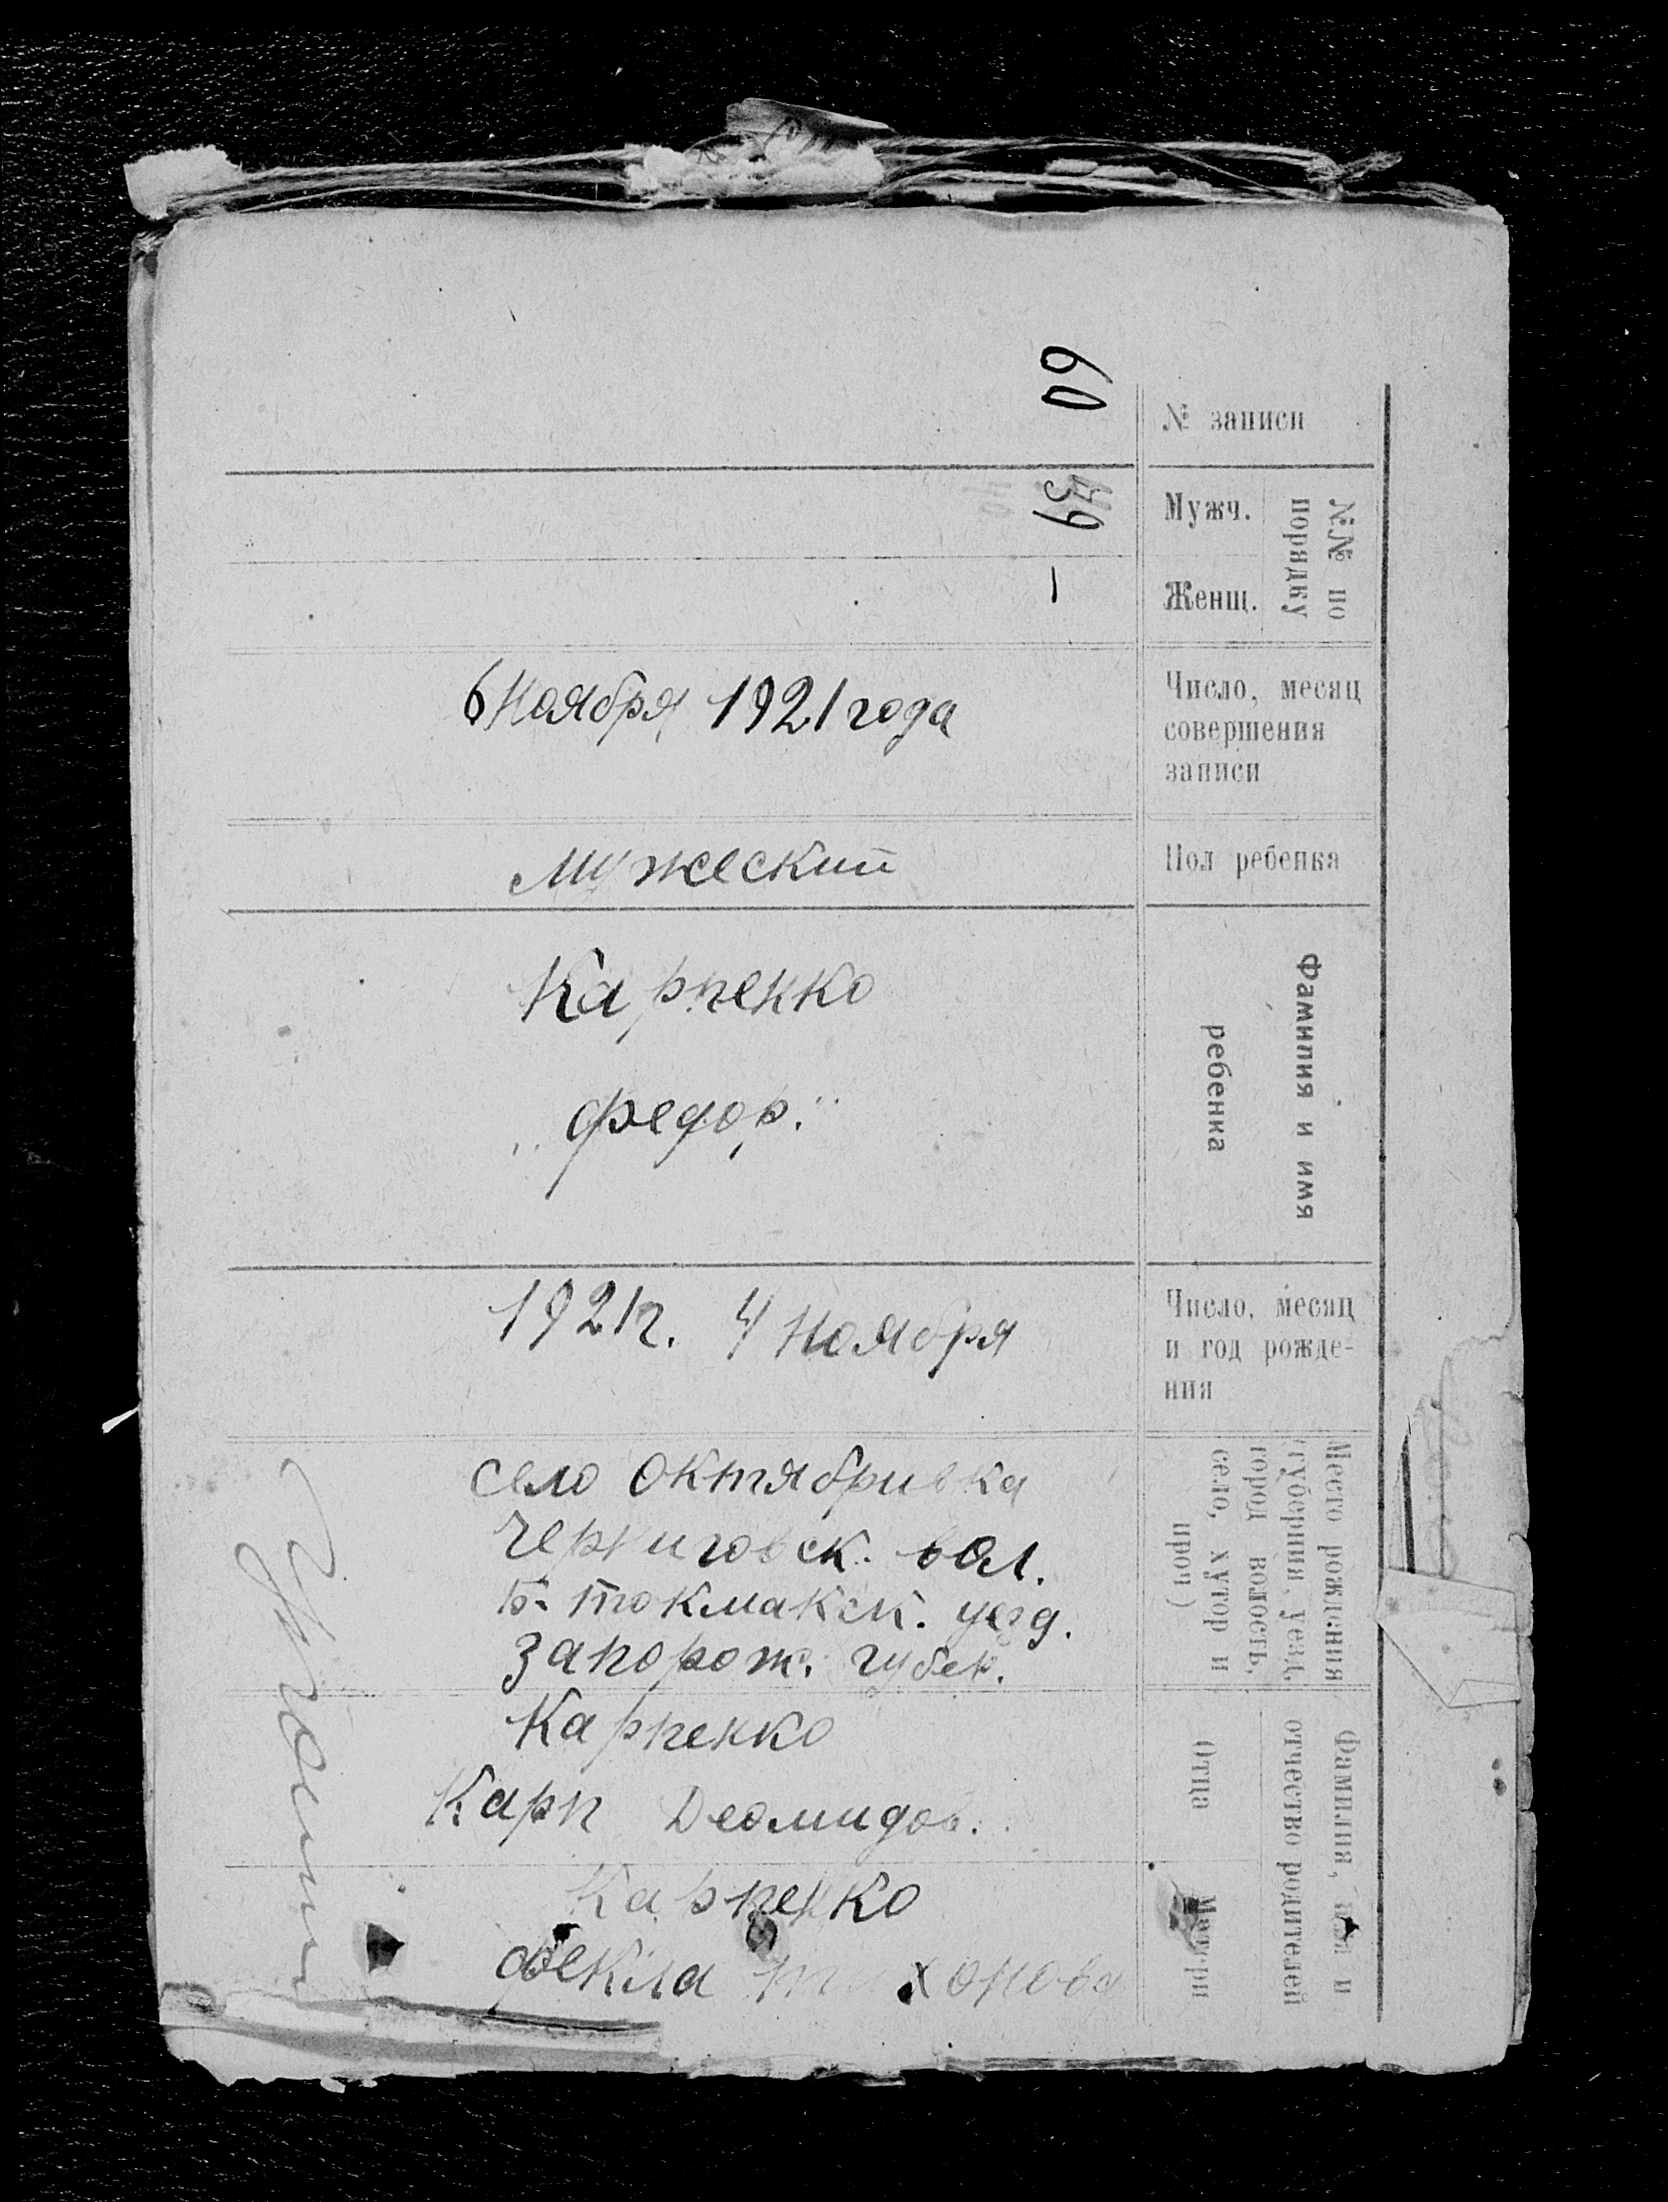 № записи
60
№№ по
порядку
Мужч.
39
Женщ.
—
Число, месяц
совершения
записи
6 Ноября 1921 года
Пол ребенка
Мужеский
Фамилия и имя
ребенка
Карпенко
„Федор."
Число, месяц
и год рожде-
ния
1921 г. 4 Ноября
Место рождения
(губерния, уезд,
город волость,
село, хутор и
проч)
село Октябривка
Черниговск. вол.
Б-Токмакск. уезд.
Запорож. губер.
Фамилия, имя и
отчество родителей
Отца
Карпенко
Карп Деомидов.
Матери
Карпенко
Фекла Тихонова